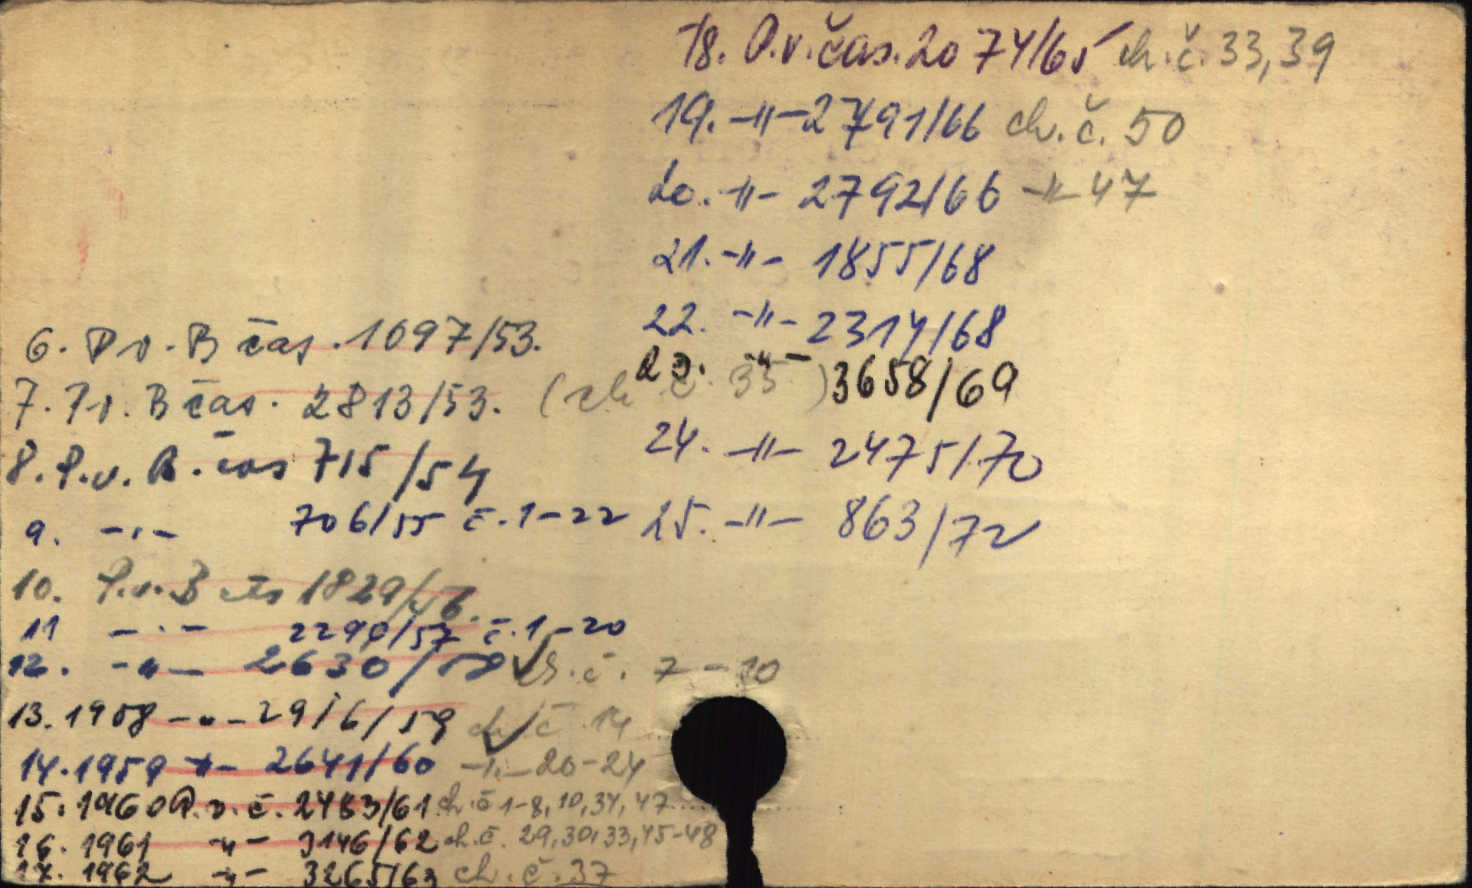 6. Pv. B čas. 1097/53.
7. Pv. B čas. 2813/53. (ch č. 35)
8. P.v. B. čas 715/54
9. -"- 706/55 č. 1-22
10. P.v. B čas 1829/56.
11 -"- 2290/57 č. 1-20
12. -"- 2630/58 ch. č. 7-10
13. 1958 -"- 2916/59 ch č 14
14. 1959 -"- 2641/60 -"- 20-24
15. 1960 P.v.č. 2483/61 ch. č 1-8, 10, 34, 47
16. 1961 -"- 3146/62 ch. č. 29, 30, 33, 45-48
17. 1962 -"- 3265/63 ch. č. 37
18. P.v. čas. 2074/65 ch. č. 33, 39
19. -"- 2791/66 ch. č. 50
20. -"- 2792/66 -"- 47
21. -"- 1855/68
22. -"- 2314/68
23. -"- 3658/69
24. -"- 2475/70
25. -"- 863/72